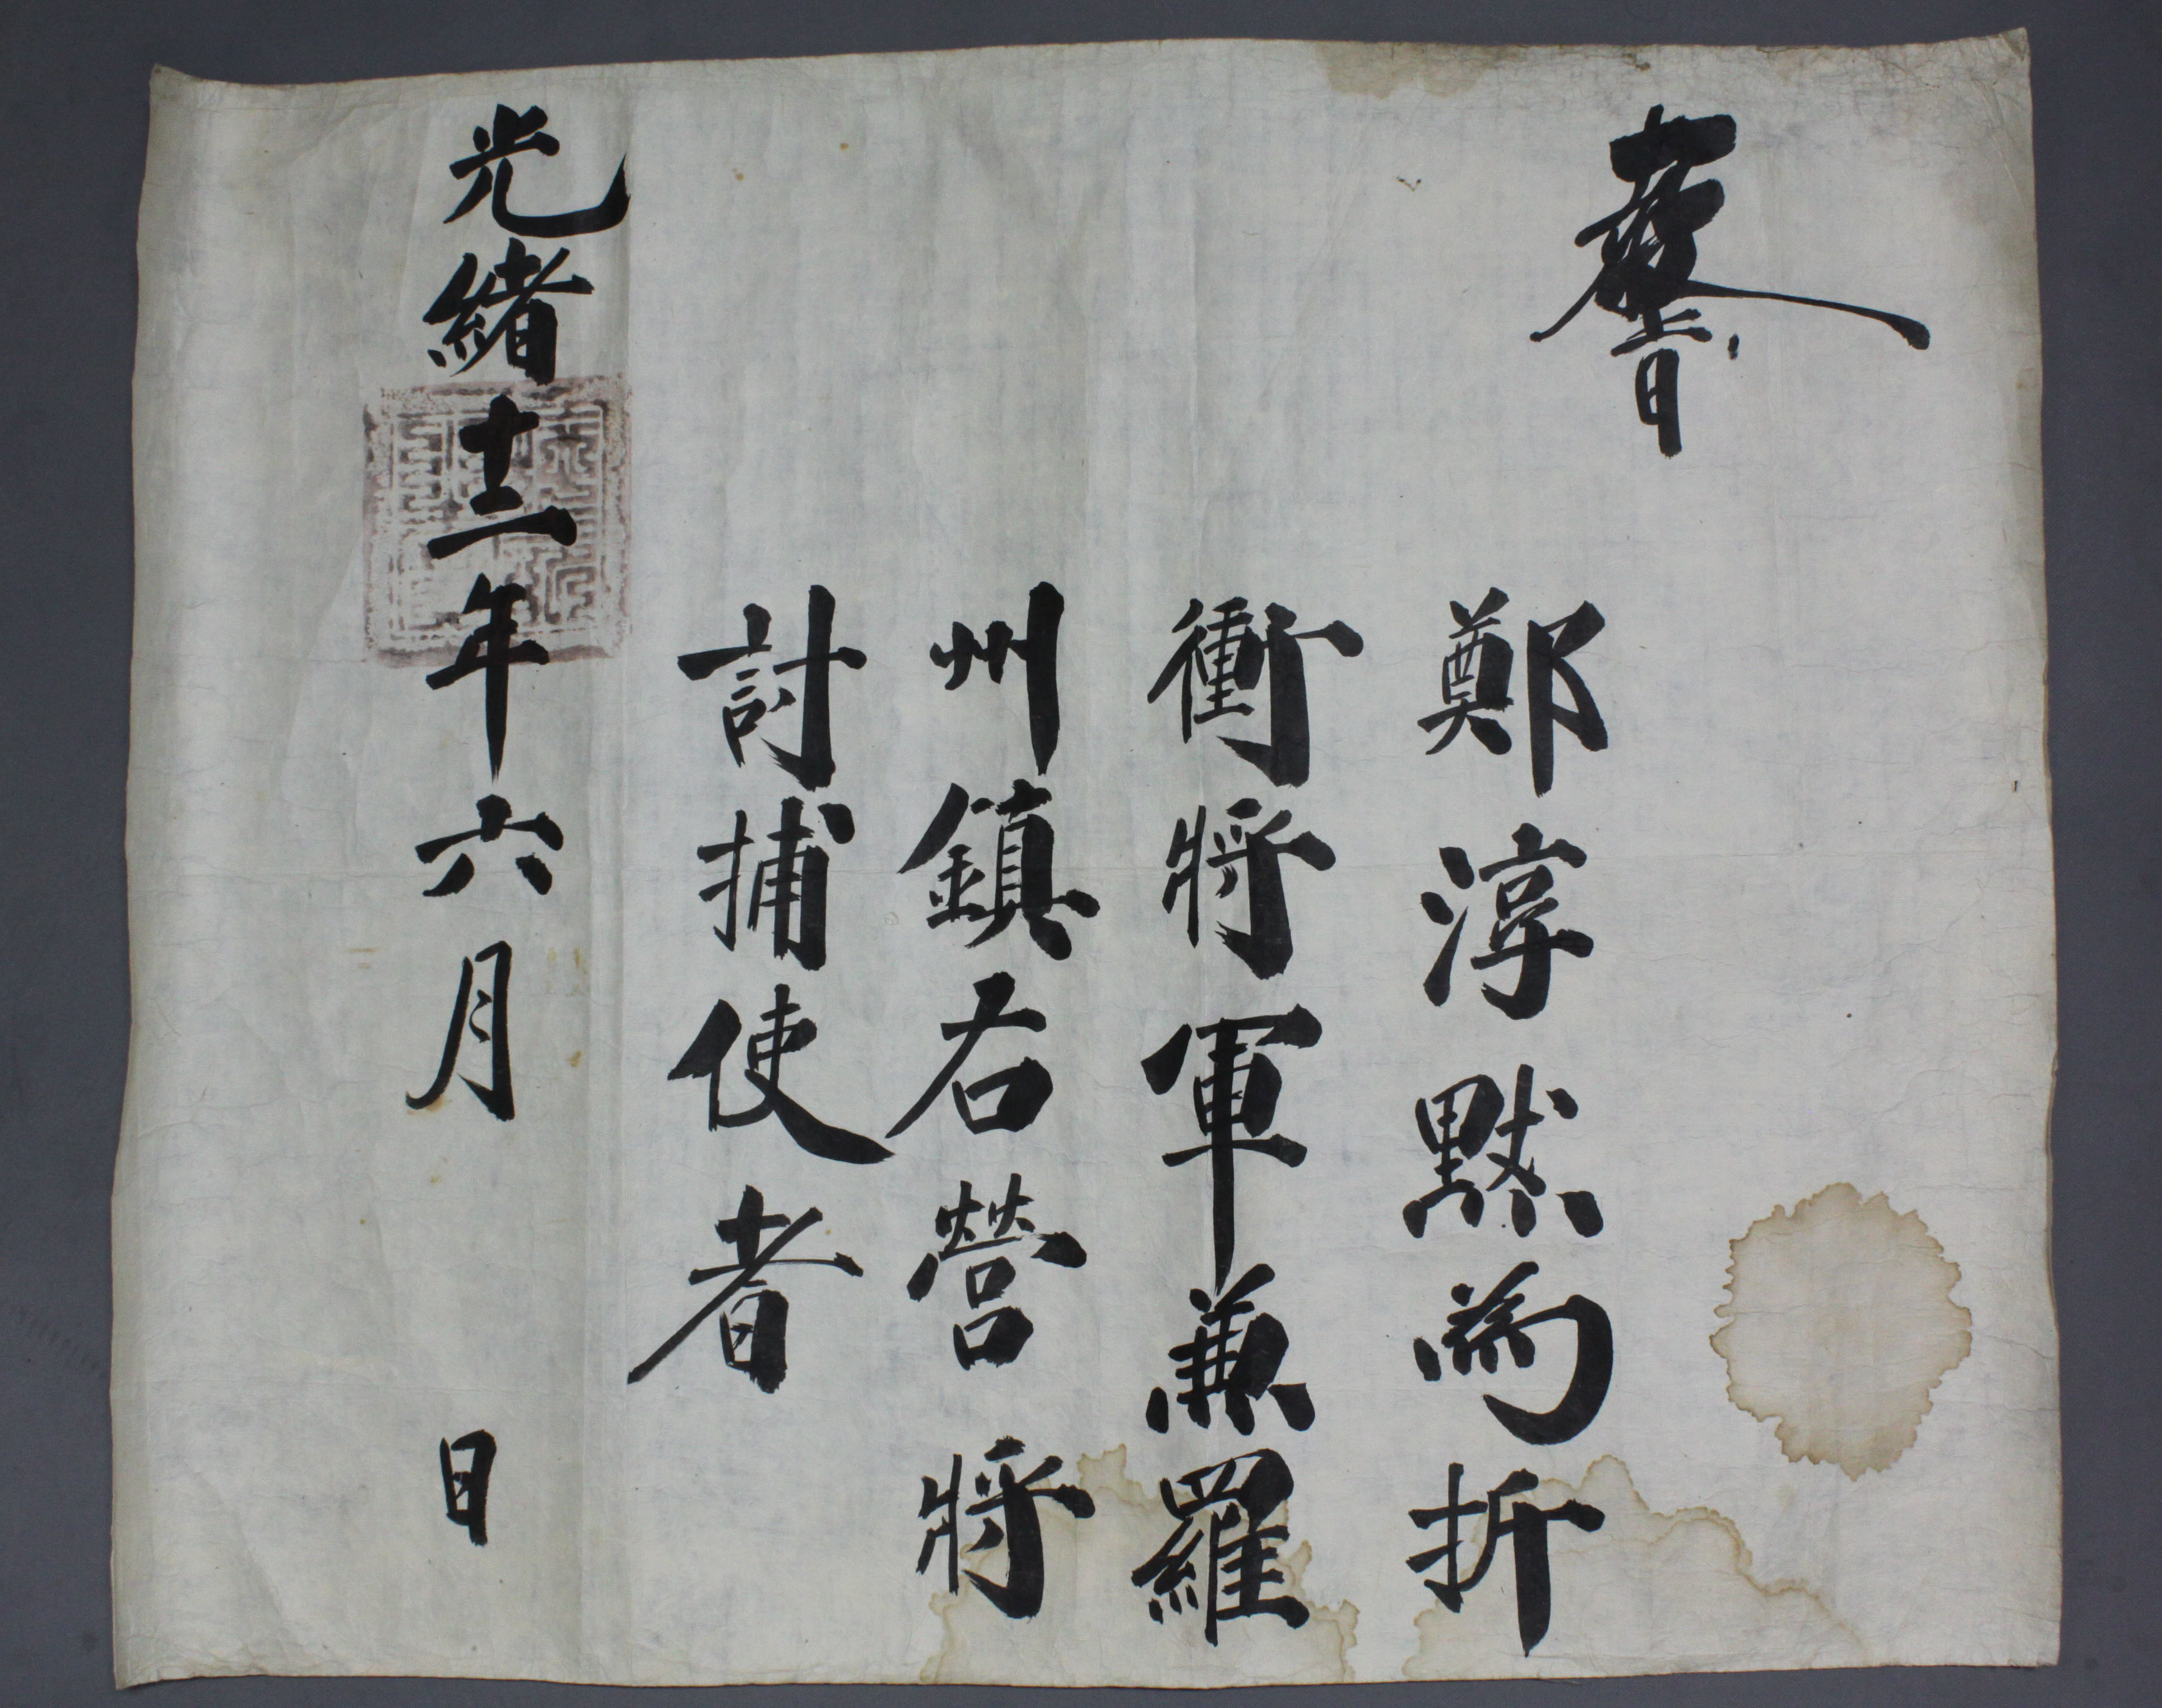 敎旨
鄭淳黙爲折
衝將軍兼羅
州鎮右營將
討捕使者
光緒十二年六月 日